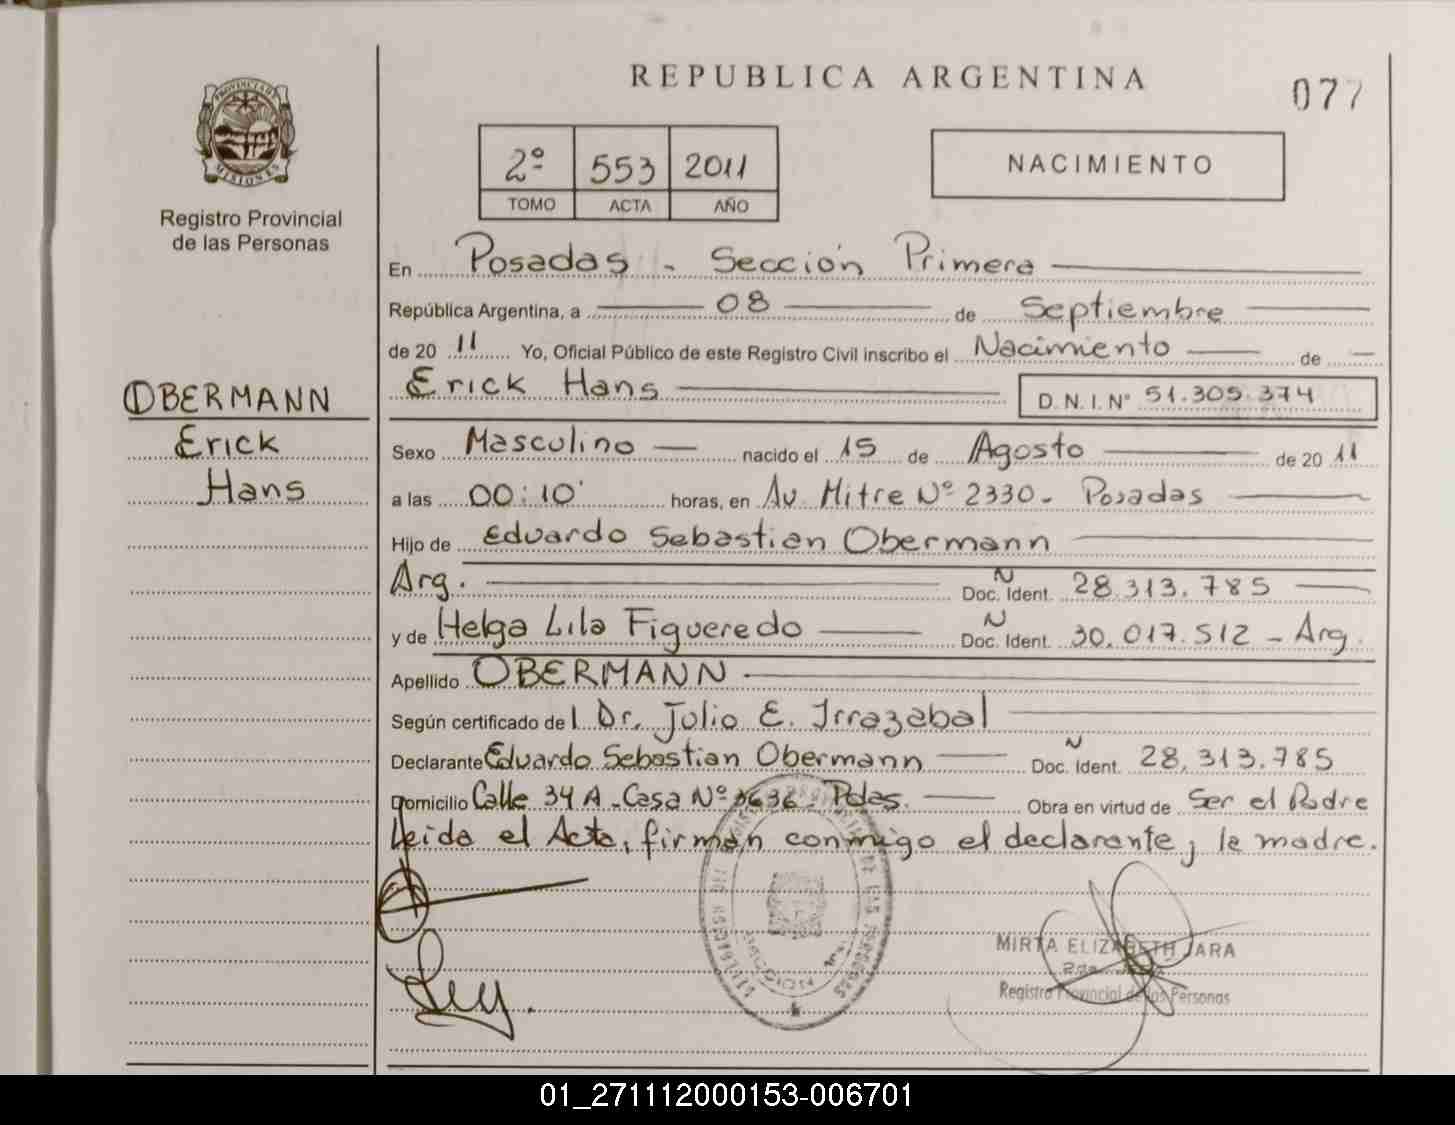 REPUBLICA ARGENTINA
077
PROVINCIA DE
MISIONES
Registro Provincial
de las Personas
2º 553 2011
TOMO ACTA AÑO
NACIMIENTO
En Posadas - Sección Primera
República Argentina, a 08 de Septiembre
de 20 11 Yo, Oficial Público de este Registro Civil inscribo el Nacimiento de
Erick Hans D.N.I. Nº 51.305.374
OBERMANN
Erick
Hans
Sexo Masculino nacido el 15 de Agosto de 20 11
a las 00:10' horas, en Av. Mitre Nº 2330 - Posadas
Hijo de Eduardo Sebastian Obermann
Arg. Doc. Ident. N 28.313.785
y de Helga Lila Figueredo Doc. Ident. N 30.017.512 - Arg.
Apellido OBERMANN
Según certificado del Dr. Julio E. Irrazabal
Declarante Eduardo Sebastian Obermann Doc. Ident. N 28.313.785
Domicilio Calle 34 A - Casa Nº 3636 - Pdas. Obra en virtud de Ser el Padre
Leida el Acta, firman conmigo el declarante y la madre.
MIRTA ELIZABETH JARA
Registro Provincial de las Personas
01_271112000153-006701